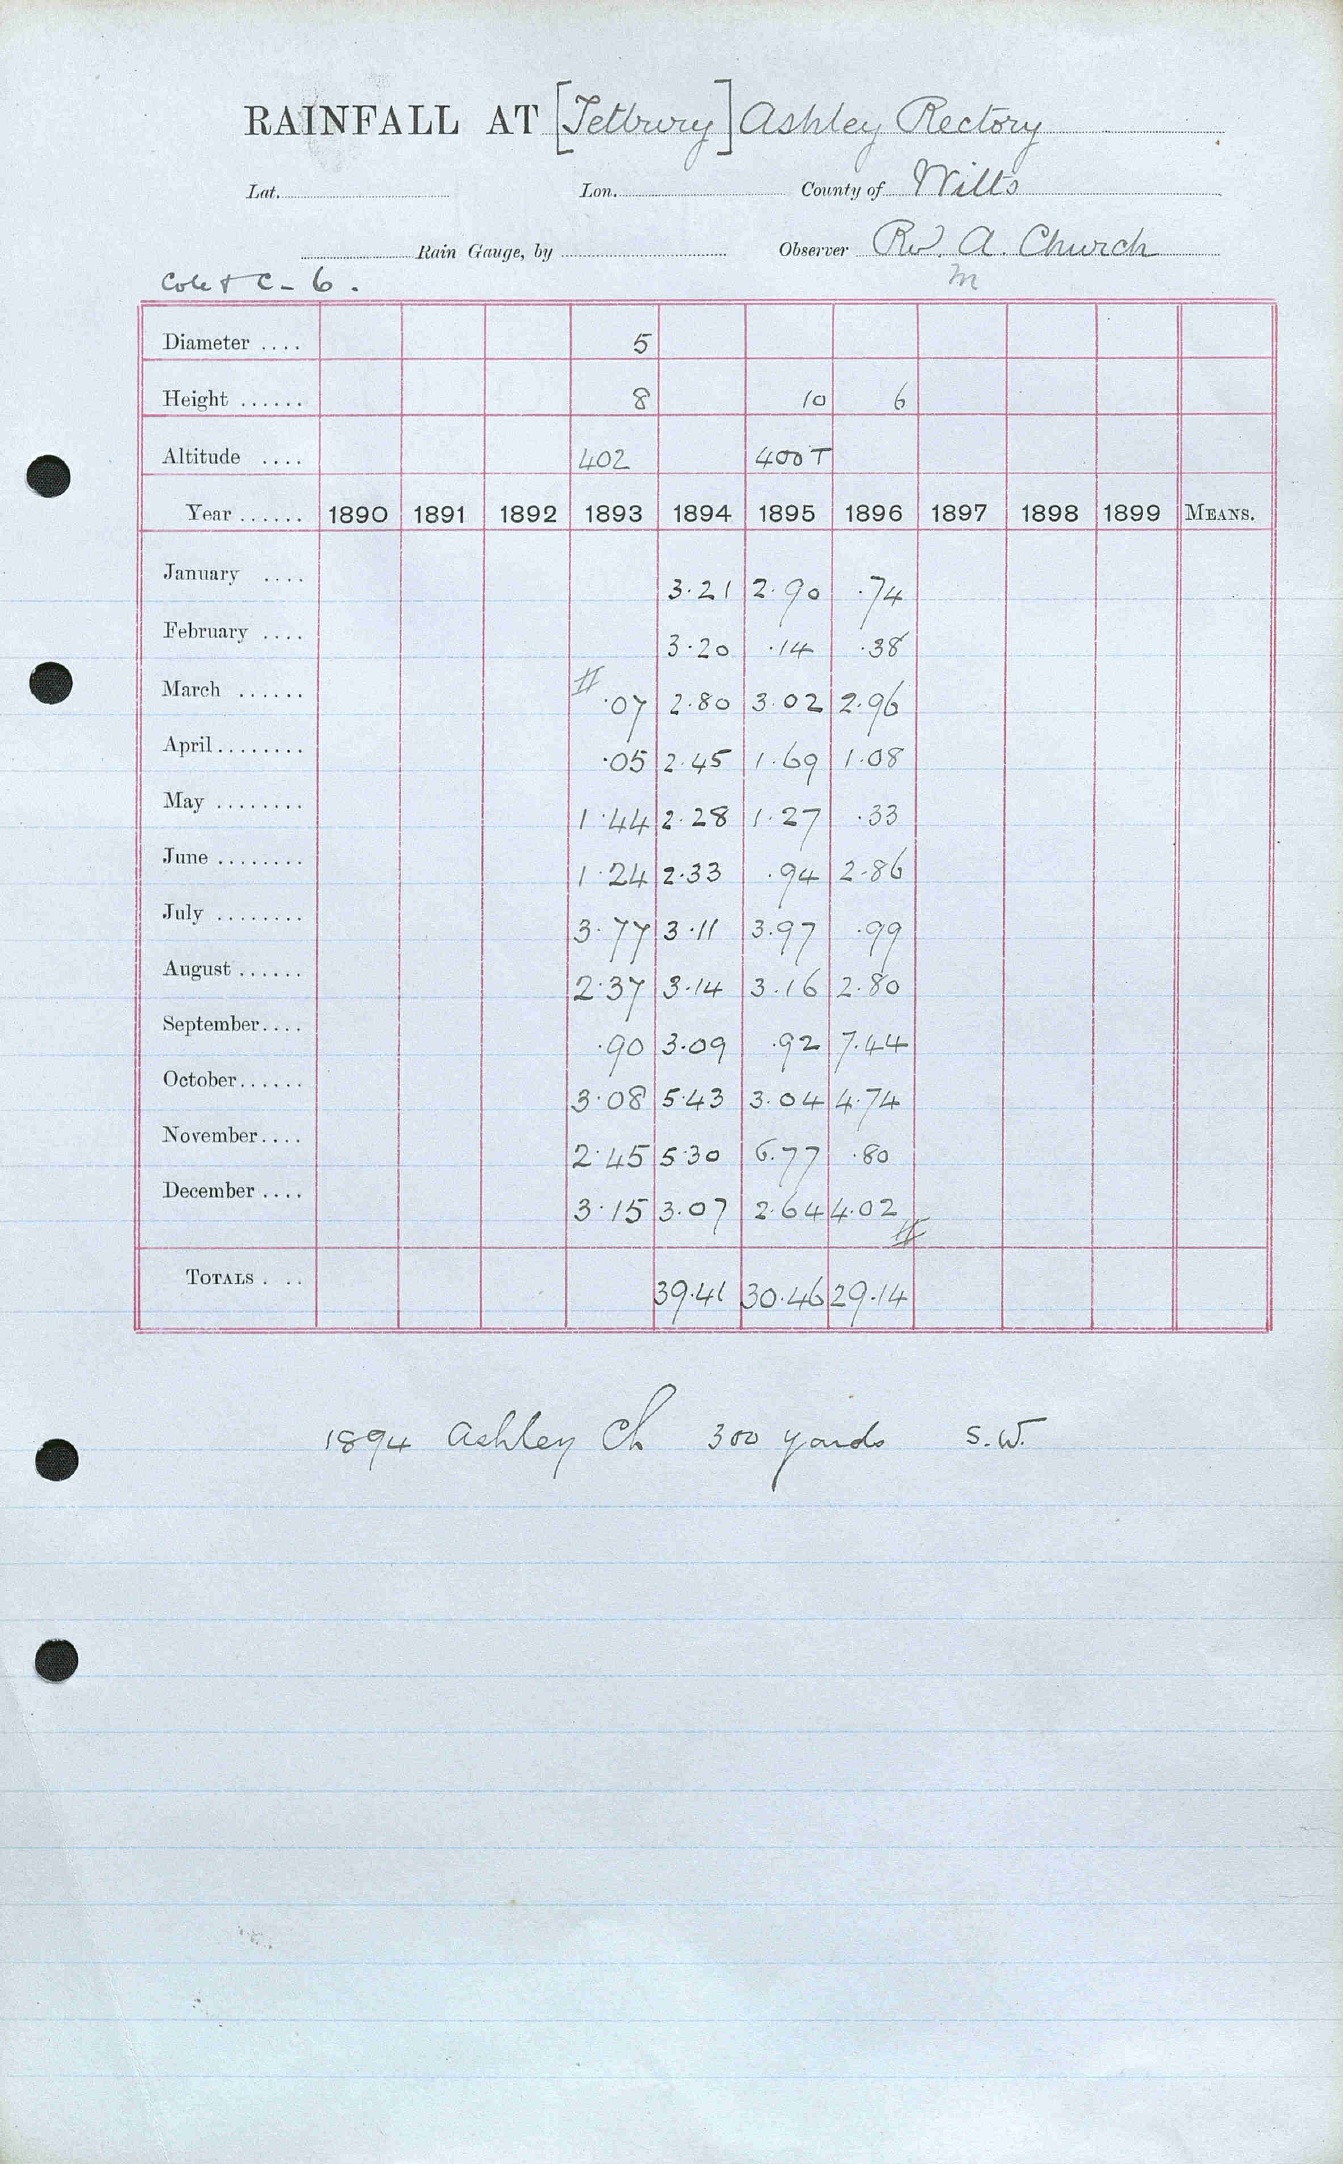 RAINFALL AT [Tetbury] Ashley Rectory
Lat. Lon. County of Wilts
Rain Gauge, by Observer Rev. A. Church
M
Diameter .... 5
Height ...... 8 10 6
Altitude .... 402 400 T
Year ...... 1890 1891 1892 1893 1894 1895 1896 1897 1898 1899 MEANS.
January .... 3.21 2.90 .74
February .... 3.20 .14 .38
March ...... # .07 2.80 3.02 2.96
April ........ .05 2.45 1.69 1.08
May ........ 1.44 2.28 1.27 .33
June ........ 1.24 2.33 .94 2.86
July ........ 3.77 3.11 3.97 .99
August ...... 2.37 3.14 3.16 2.80
September.... .90 3.09 .92 7.44
October...... 3.08 5.43 3.04 4.74
November.... 2.45 5.30 6.77 .80
December .... 3.15 3.07 2.64 4.02 #
TOTALS . .. 39.41 30.46 29.14
1894 Ashley Ch 300 yards S.W.